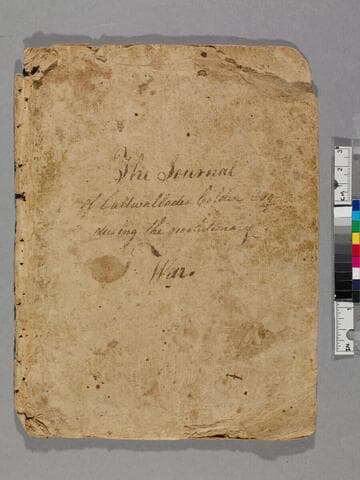 The Journal
of Cadwallader Colden Esq
during the revolutionary
War.